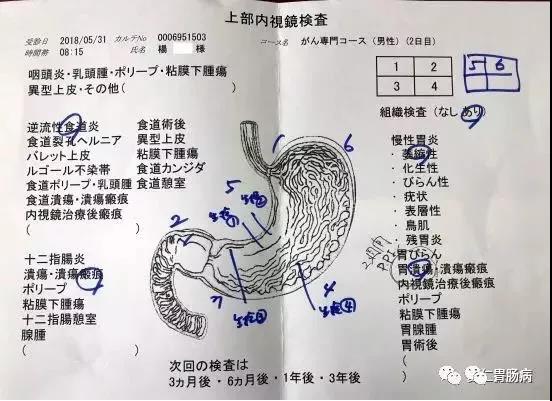 上部内視鏡検査
受診日 2018/05/31 カルテNo 0006951503
時間帯 08:15 氏名 楊 様
コース名 がん専門コース(男性)(2日目)
咽頭炎・乳頭腫・ポリープ・粘膜下腫瘍
異型上皮・その他(
)
1 2
3 4
5 6
組織検査(なし あり)
逆流性食道炎 食道術後
食道裂孔ヘルニア 異型上皮
バレット上皮 粘膜下腫瘍
ルゴール不染帯 食道カンジダ
食道ポリープ・乳頭腫 食道憩室
食道潰瘍・潰瘍瘢痕
内視鏡治療後瘢痕
(
)
慢性胃炎
・萎縮性
・化生性
・びらん性
・疣状
・表層性
・鳥肌
・残胃炎
胃びらん
胃潰瘍・潰瘍瘢痕
内視鏡治療後瘢痕
ポリープ
粘膜下腫瘍
胃腺腫
胃術後
(
)
十二指腸炎
潰瘍・潰瘍瘢痕
ポリープ
粘膜下腫瘍
十二指腸憩室
腺腫
(
)
1
6
5
2
7
4
次回の検査は
3ヵ月後・6ヵ月後・1年後・3年後
仁胃肠病